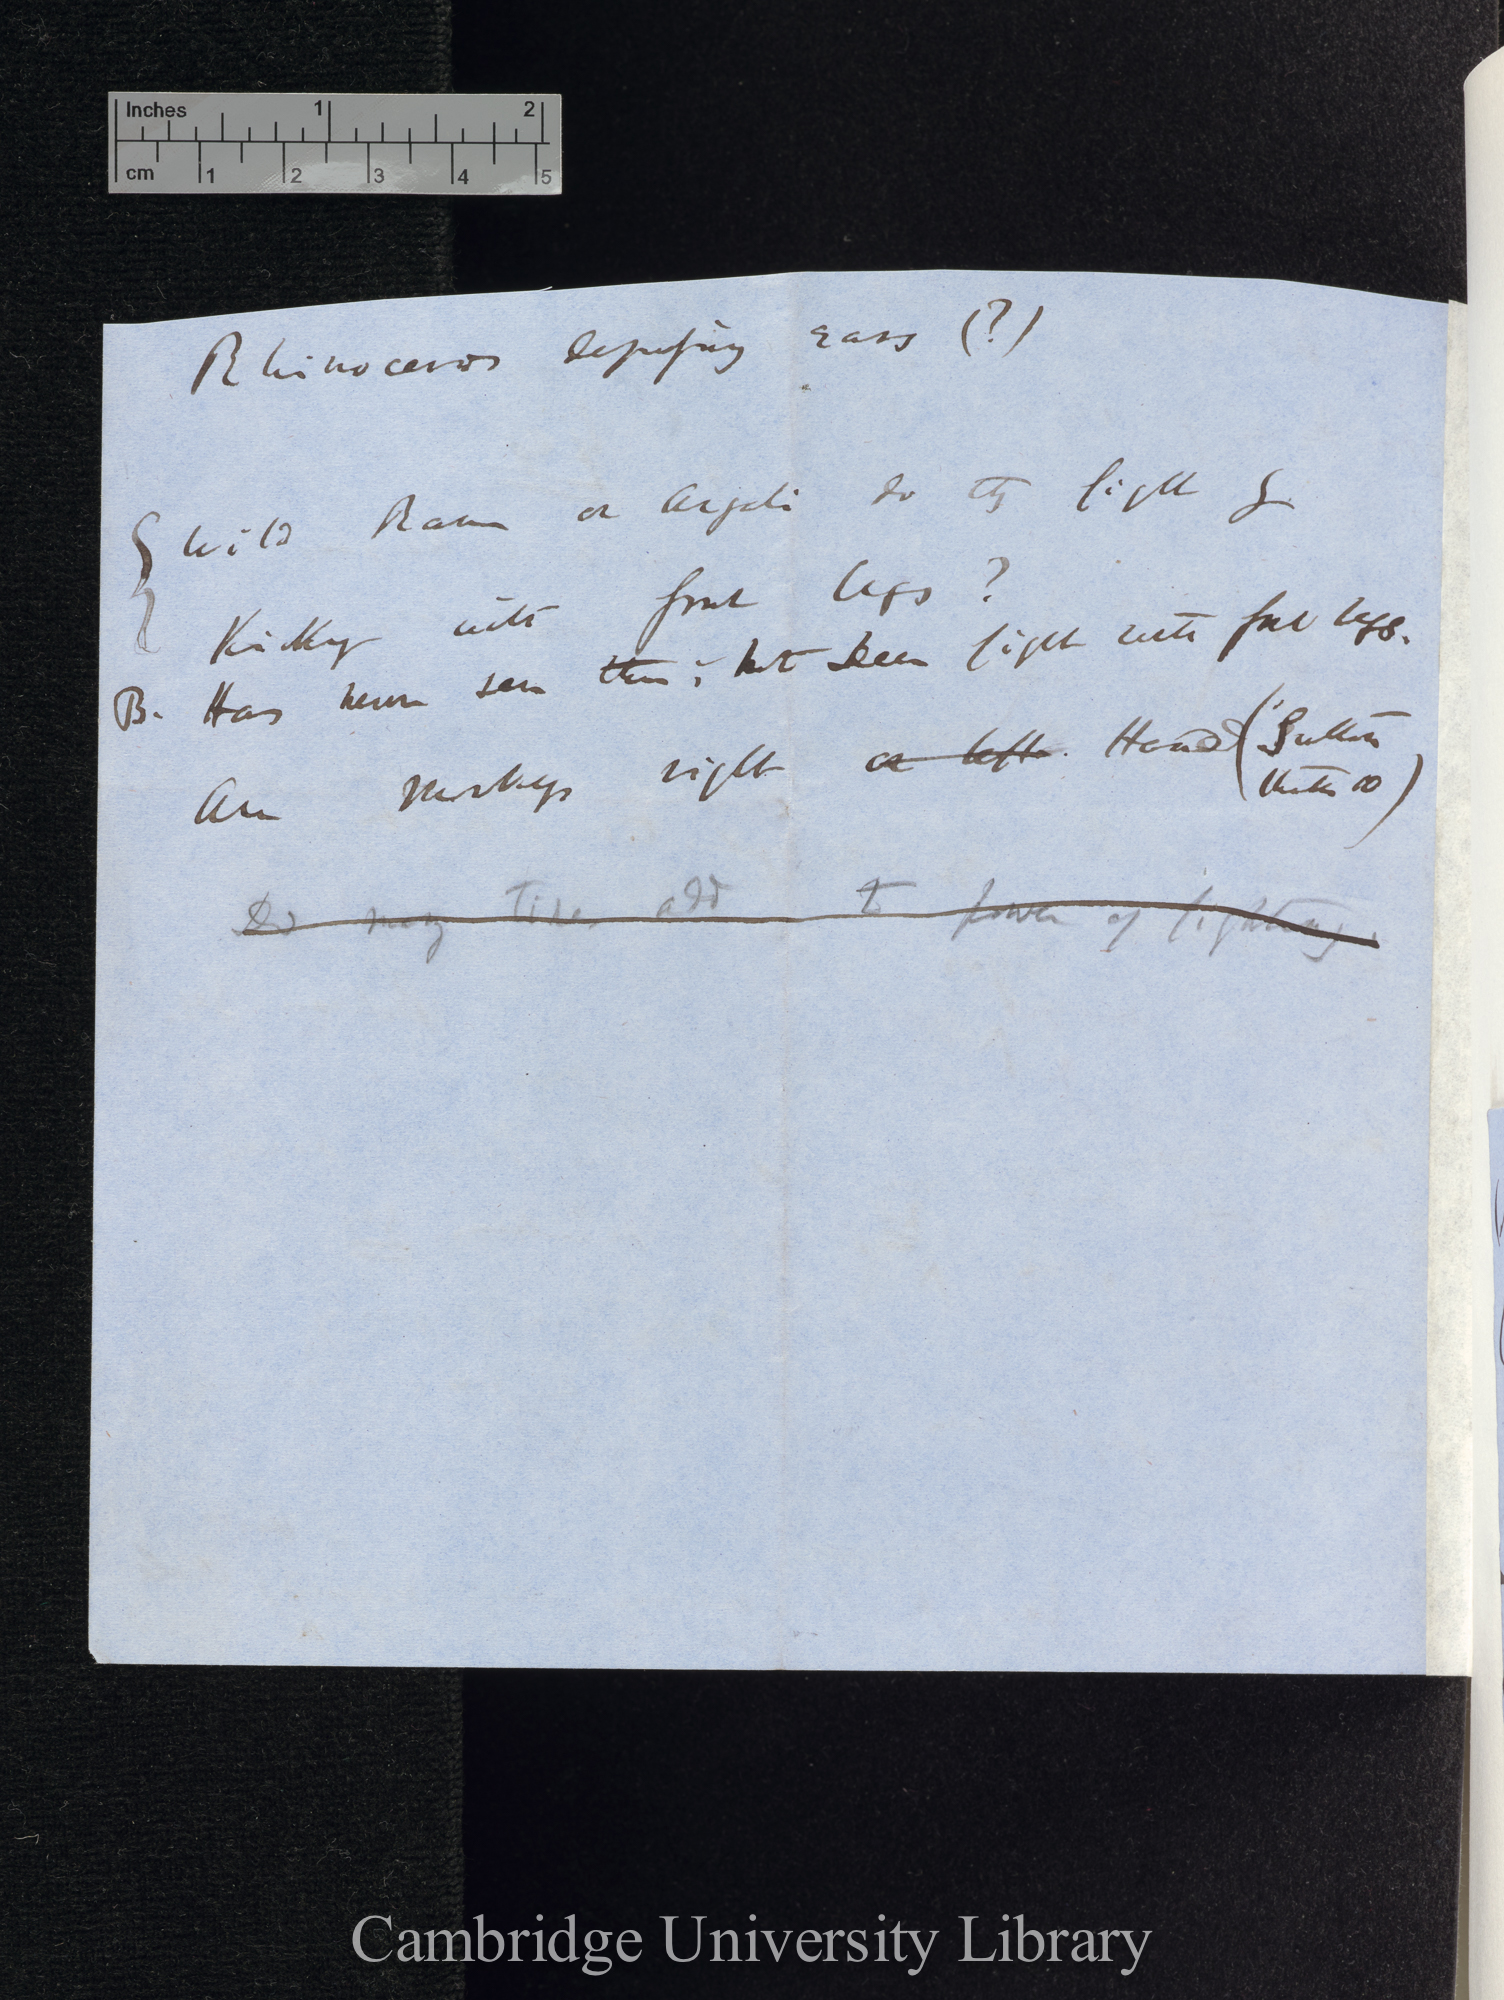 Inches 1 2
cm 1 2 3 4 5
Rhinoceros depressing ears (?)
Wild Ram or Argali do they fight by
Kicking with front legs?
B. Has never seen this; but seen fight with front legs.
Are monkeys right or left. Handed (Sutton
thinks so)
Do many Tines add to power of fighting.
Cambridge University Library